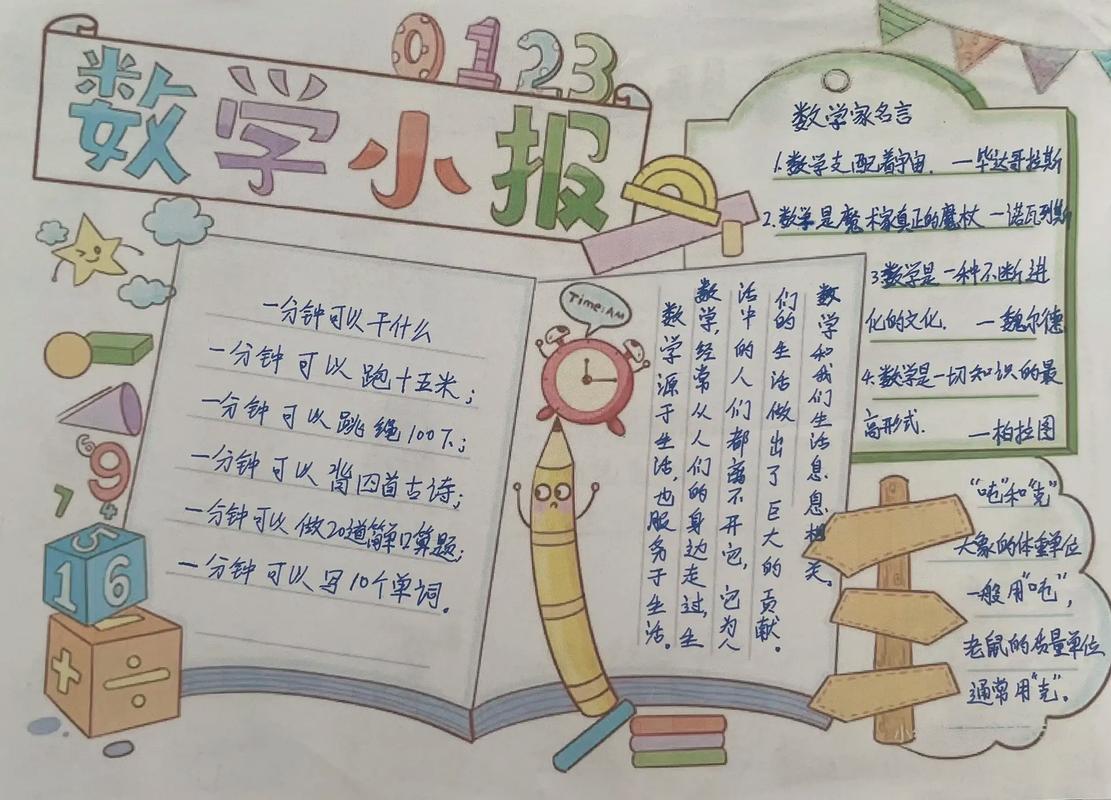 0123
数学小报
数学家名言
1.数学支配着宇宙. —毕达哥拉斯
2.数学是魔术家真正的魔杖 —诺瓦列斯
3数学是一种不断进
化的文化. —魏尔德
4.数学是一切知识的最
高形式. —柏拉图
一分钟可以干什么
一分钟可以跑十五米;
一分钟可以跳绳100下;
一分钟可以背四首古诗;
一分钟可以做20道简单口算题;
一分钟可以写10个单词。
Time:AM
数学源于生活,也服务于生活。
数学,经常从人们的身边走过,生
活中的人们都离不开它,它为人
们的生活做出了巨大的贡献。
数学和我们生活息息相关。
“吨”和“克”
大象的体重单位
一般用“吨”,
老鼠的质量单位
通常用“克”。
6
9
7
4
5
1 6
+ ÷